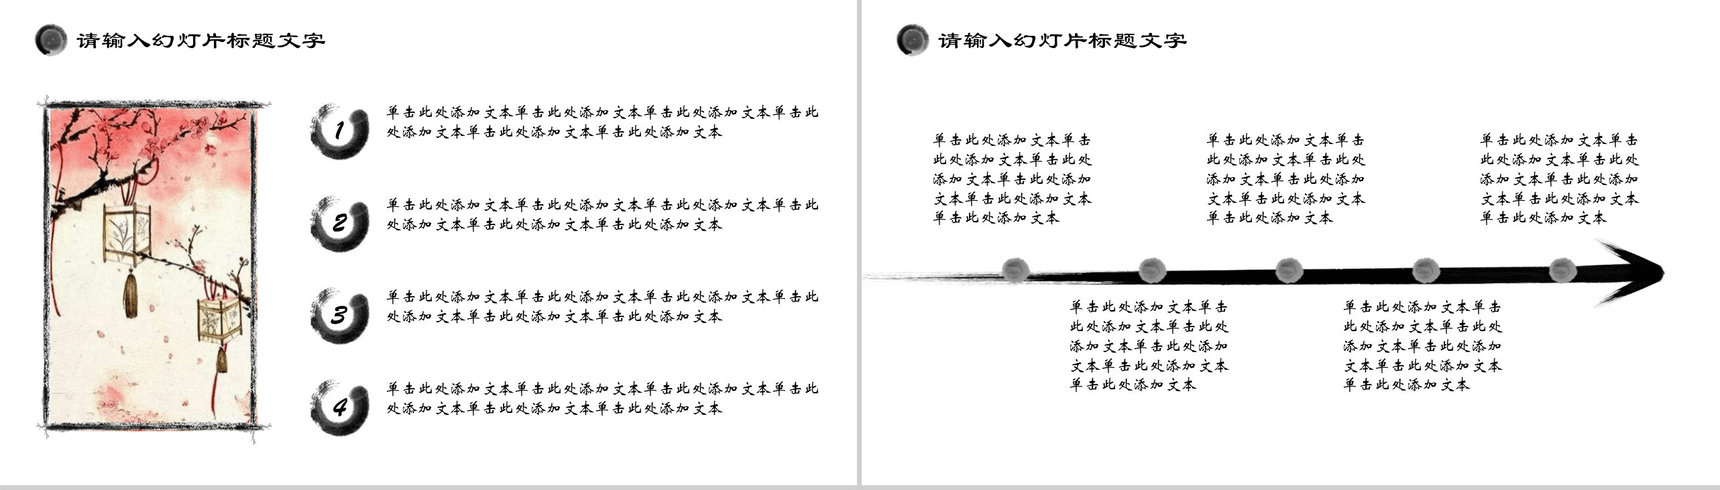 请输入幻灯片标题文字
1
单击此处添加文本单击此处添加文本单击此处添加文本单击此
处添加文本单击此处添加文本单击此处添加文本
2
单击此处添加文本单击此处添加文本单击此处添加文本单击此
处添加文本单击此处添加文本单击此处添加文本
3
单击此处添加文本单击此处添加文本单击此处添加文本单击此
处添加文本单击此处添加文本单击此处添加文本
4
单击此处添加文本单击此处添加文本单击此处添加文本单击此
处添加文本单击此处添加文本单击此处添加文本
请输入幻灯片标题文字
单击此处添加文本单击
此处添加文本单击此处
添加文本单击此处添加
文本单击此处添加文本
单击此处添加文本
单击此处添加文本单击
此处添加文本单击此处
添加文本单击此处添加
文本单击此处添加文本
单击此处添加文本
单击此处添加文本单击
此处添加文本单击此处
添加文本单击此处添加
文本单击此处添加文本
单击此处添加文本
单击此处添加文本单击
此处添加文本单击此处
添加文本单击此处添加
文本单击此处添加文本
单击此处添加文本
单击此处添加文本单击
此处添加文本单击此处
添加文本单击此处添加
文本单击此处添加文本
单击此处添加文本